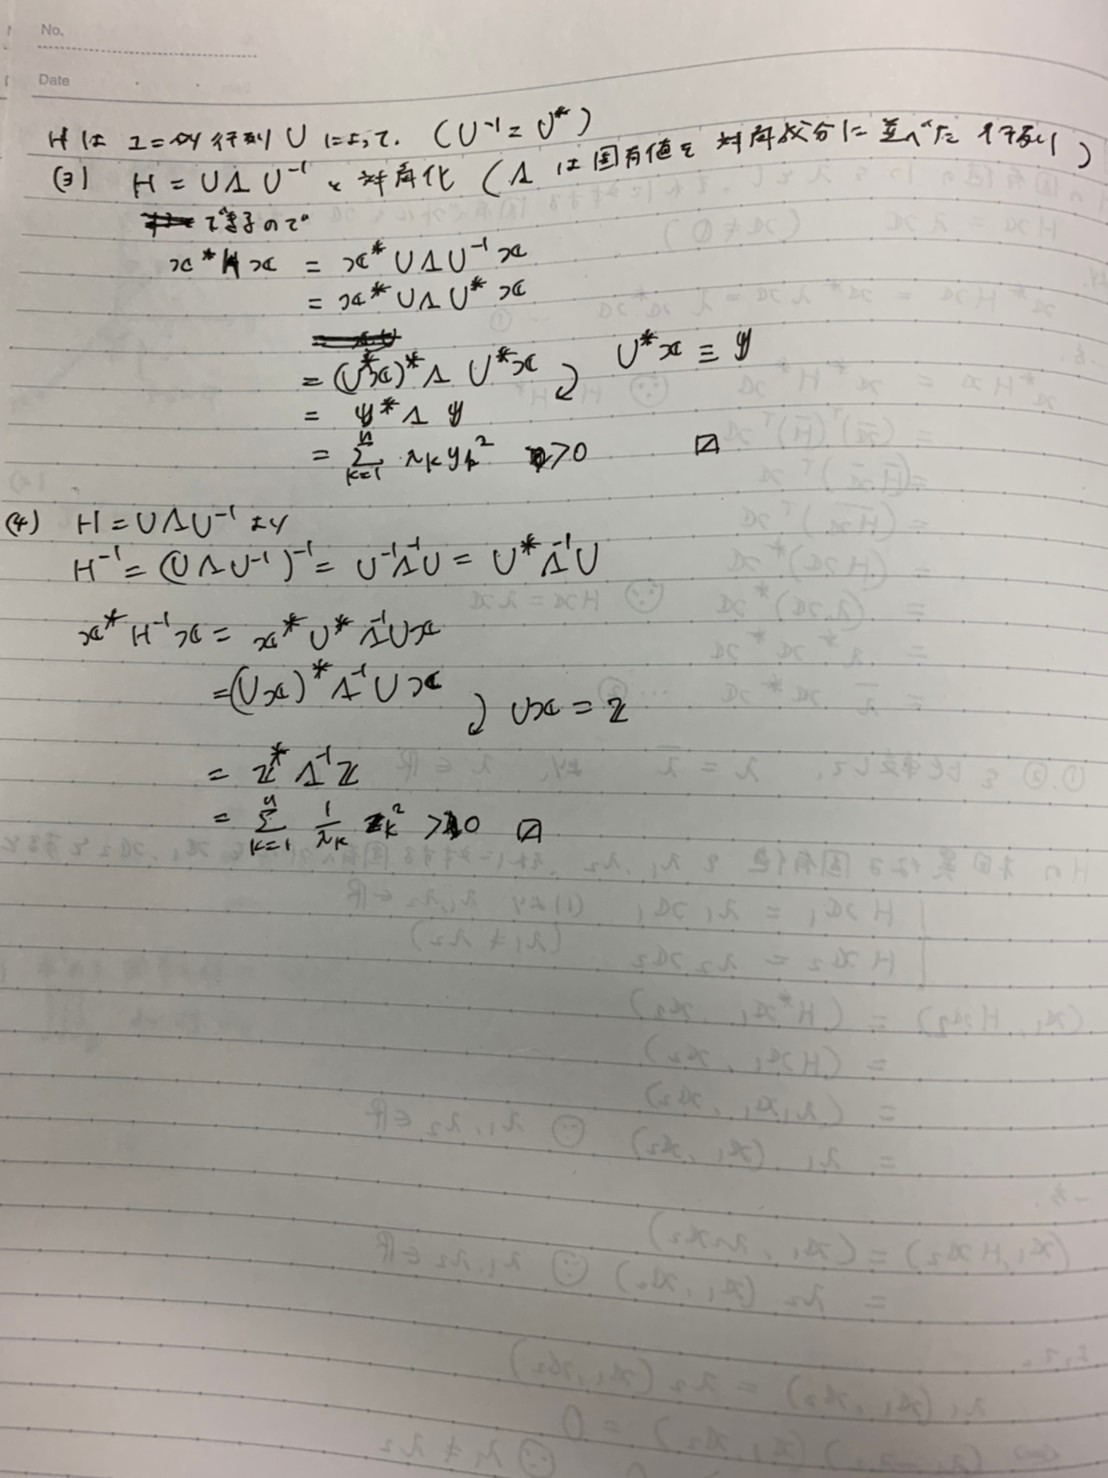 No.
Date
H は ユニタリ行列 U によって. (U⁻¹ = U*)
(3) H = UΛU⁻¹ と 対角化 (Λ は固有値を 対角成分に 並べた 行列)
できるので
x*Hx = x*UΛU⁻¹x
= x*UΛU*x
= (U*x)*Λ U*x U*x ≡ y
= y*Λ y
= Σ_{k=1}^{n} λₖ yₖ² >0 □
(4) H = UΛU⁻¹ より
H⁻¹ = (UΛU⁻¹)⁻¹ = U⁻¹Λ⁻¹U = U*Λ⁻¹U
x*H⁻¹x = x*U*Λ⁻¹Ux
= (Ux)*Λ⁻¹Ux
Ux = z
= z*Λ⁻¹z
= Σ_{k=1}^{n} 1/λₖ zₖ² >0 □